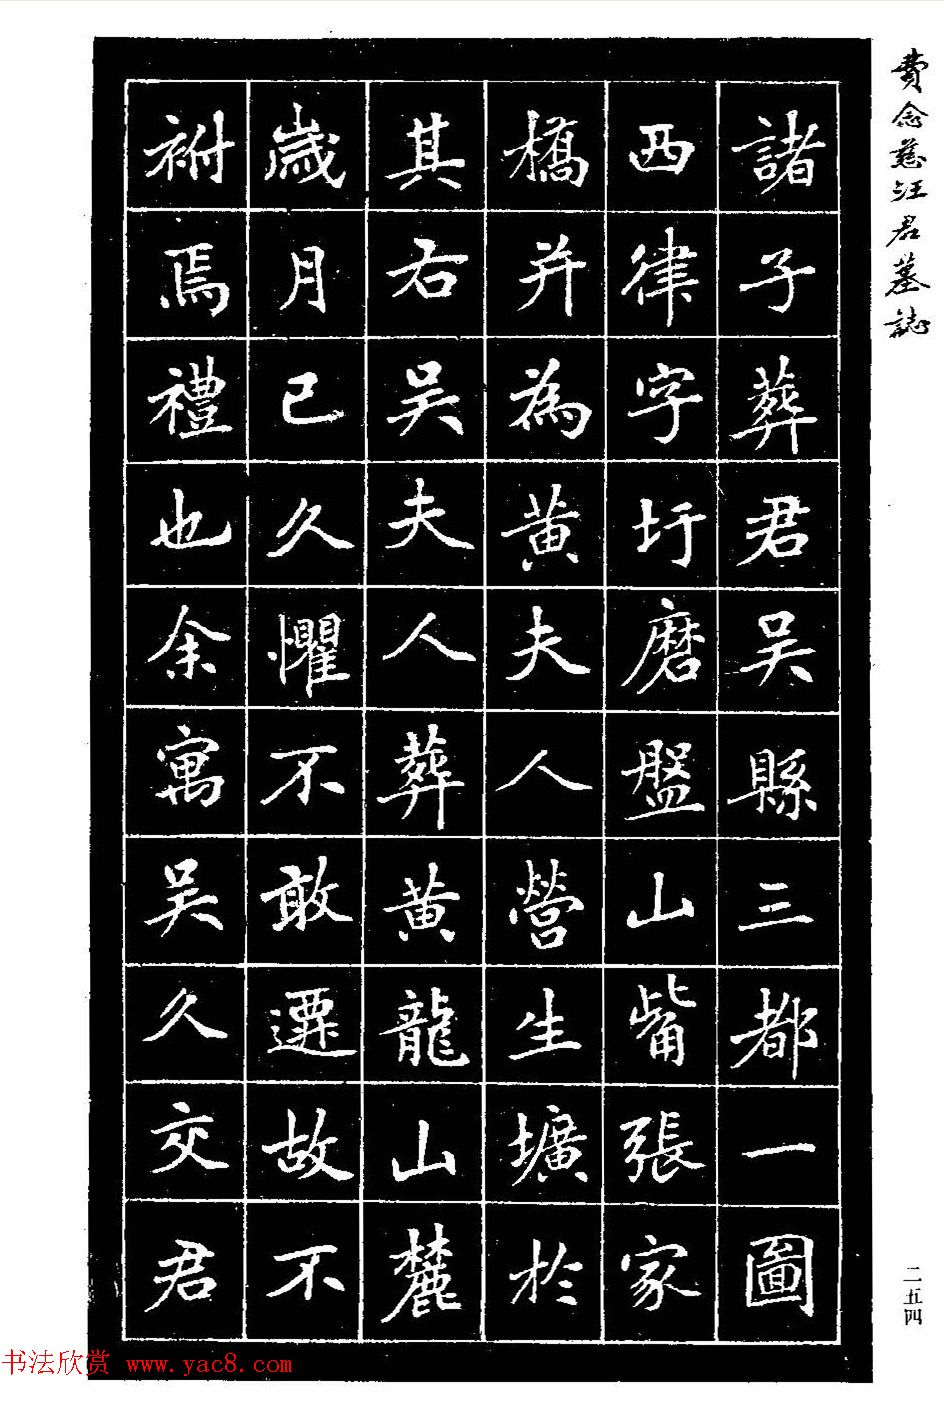 費念慈汪君墓誌
諸子葬君吴縣三都一圖
西律字圩磨盤山觜張家
橋并為黄夫人營生壙於
其右吴夫人葬黄龍山麓
歲月已久懼不敢遷故不
祔焉禮也余寓吴久交君
二五四
书法欣赏 www.yac8.com